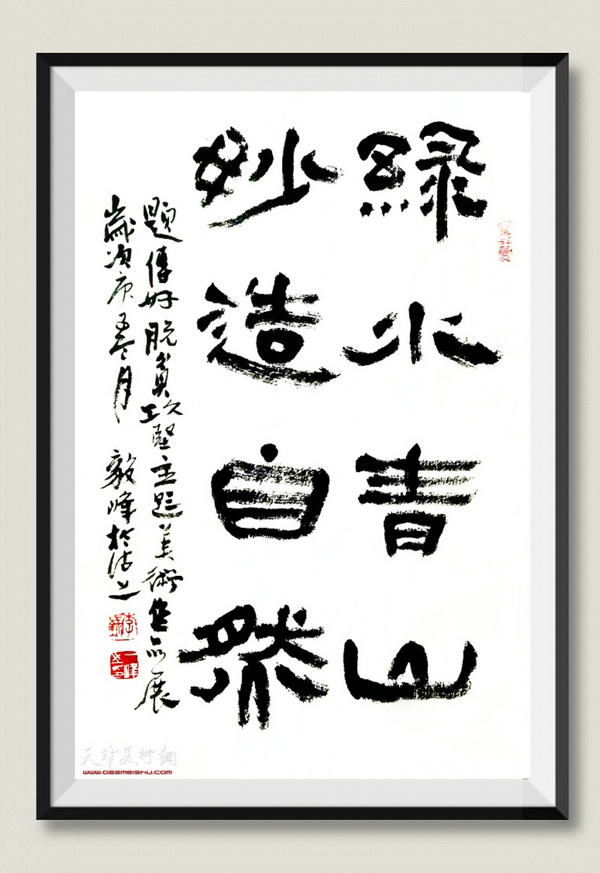 綠水青山
妙造自然
題傳好脫貧攻堅主題美術作品展
歲次庚子冬月 毅峰於沽上
天津美術網
www.022meishu.com